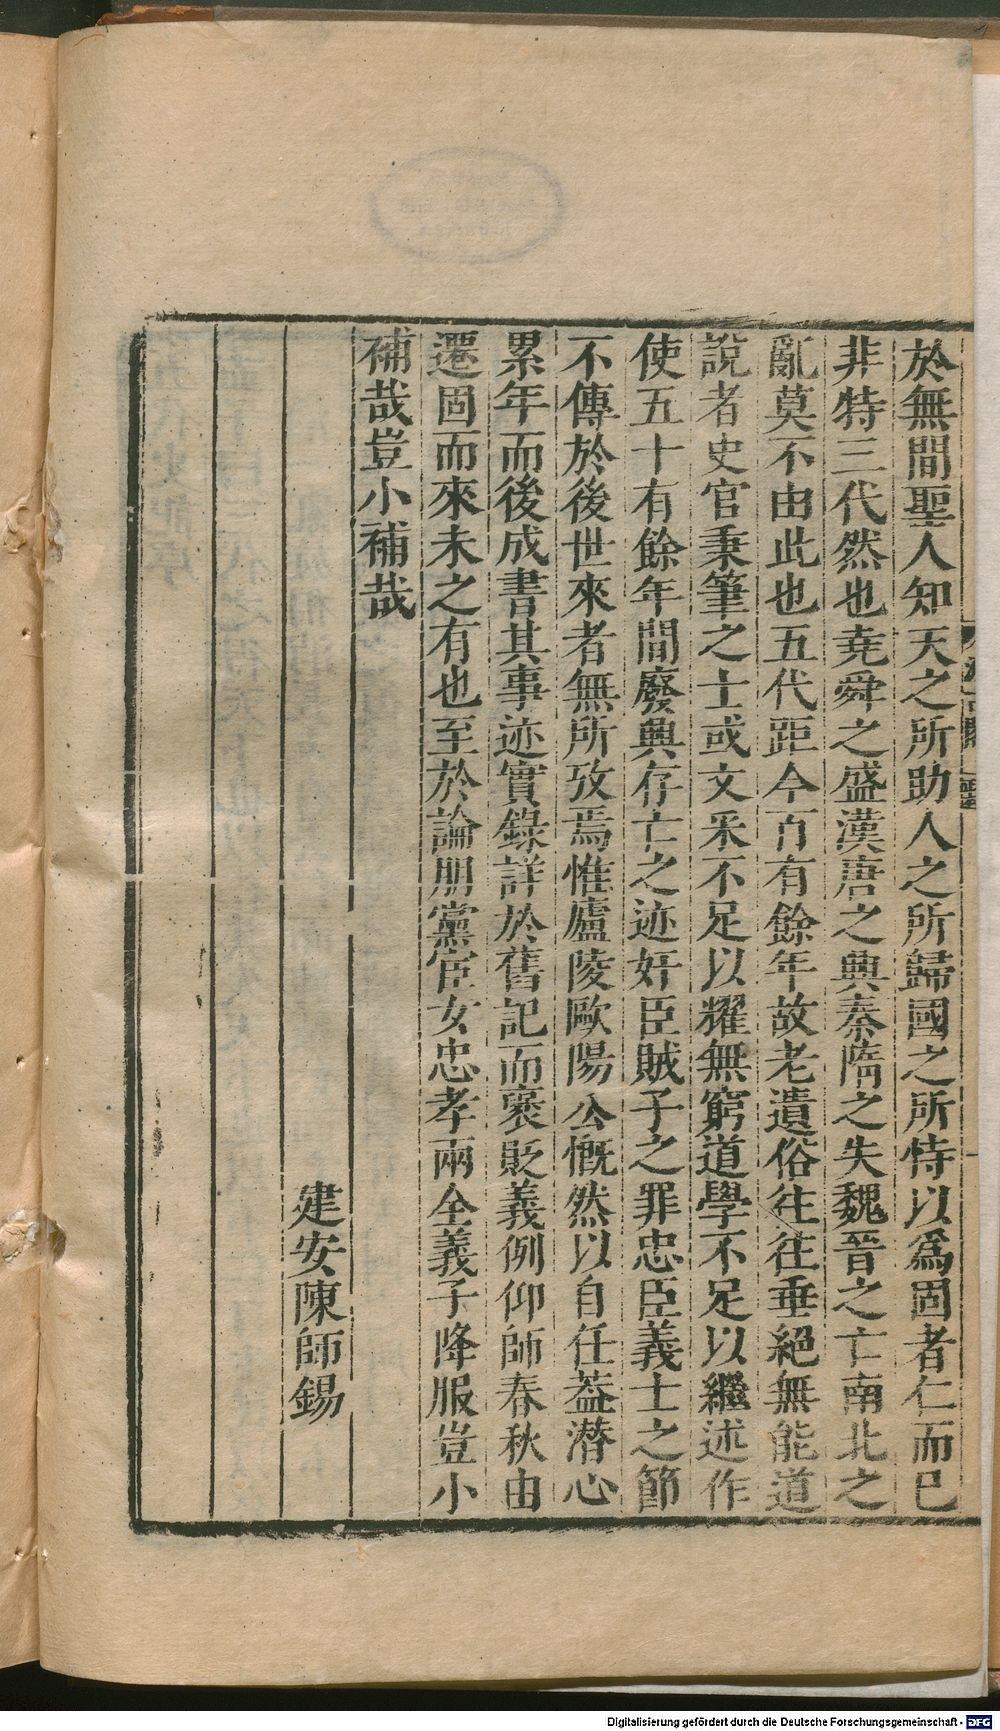 於無間聖人知天之所助人之所歸國之所恃以爲固者仁而已
非特三代然也堯舜之盛漢唐之興秦隋之失魏晉之亡南北之
亂莫不由此也五代距今百有餘年故老遺俗往往垂絕無能道
說者史官秉筆之士或文采不足以耀無窮道學不足以繼述作
使五十有餘年間廢興存亡之迹奸臣賊子之罪忠臣義士之節
不傳於後世來者無所攷焉惟廬陵歐陽公慨然以自任葢潜心
累年而後成書其事迹實錄詳於舊記而褒貶義例仰師春秋由
遷固而來未之有也至於論朋黨宦女忠孝兩全義子降服豈小
補哉豈小補哉
建安陳師錫
Digitalisierung gefördert durch die Deutsche Forschungsgemeinschaft - DFG